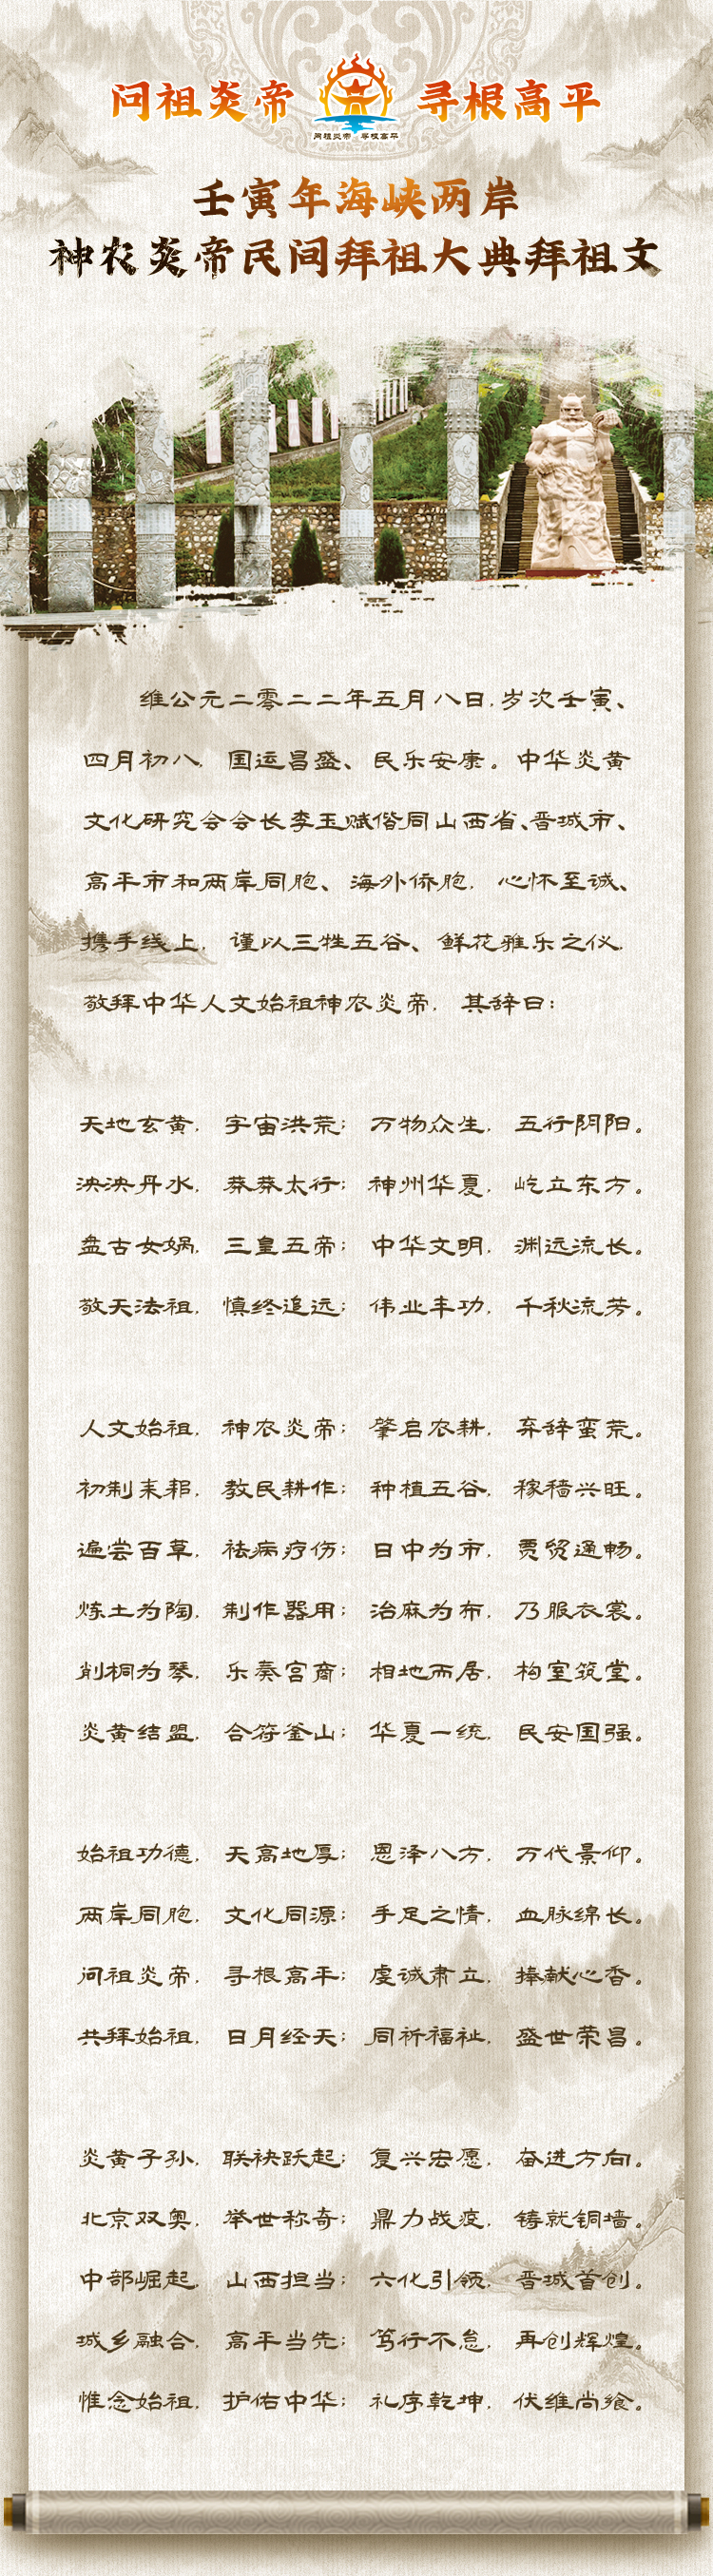 问祖炎帝 寻根高平
问祖炎帝 寻根高平
壬寅年海峡两岸
神农炎帝民间拜祖大典拜祖文
维公元二零二二年五月八日，岁次壬寅、
四月初八，国运昌盛、民乐安康。中华炎黄
文化研究会会长李玉赋偕同山西省、晋城市、
高平市和两岸同胞、海外侨胞，心怀至诚、
携手线上，谨以三牲五谷、鲜花雅乐之仪，
敬拜中华人文始祖神农炎帝，其辞曰：
天地玄黄，宇宙洪荒；万物众生，五行阴阳。
泱泱丹水，莽莽太行；神州华夏，屹立东方。
盘古女娲，三皇五帝；中华文明，渊远流长。
敬天法祖，慎终追远；伟业丰功，千秋流芳。
人文始祖，神农炎帝；肇启农耕，弃辞蛮荒。
初制耒耜，教民耕作；种植五谷，稼穑兴旺。
遍尝百草，祛病疗伤；日中为市，贾贸通畅。
炼土为陶，制作器用；治麻为布，乃服衣裳。
削桐为琴，乐奏宫商；相地而居，构室筑堂。
炎黄结盟，合符釜山；华夏一统，民安国强。
始祖功德，天高地厚；恩泽八方，万代景仰。
两岸同胞，文化同源；手足之情，血脉绵长。
问祖炎帝，寻根高平；虔诚肃立，捧献心香。
共拜始祖，日月经天；同祈福祉，盛世荣昌。
炎黄子孙，联袂跃起；复兴宏愿，奋进方向。
北京双奥，举世称奇；鼎力战疫，铸就铜墙。
中部崛起，山西担当；六化引领，晋城首创。
城乡融合，高平当先；笃行不怠，再创辉煌。
惟念始祖，护佑中华；礼序乾坤，伏维尚飨。